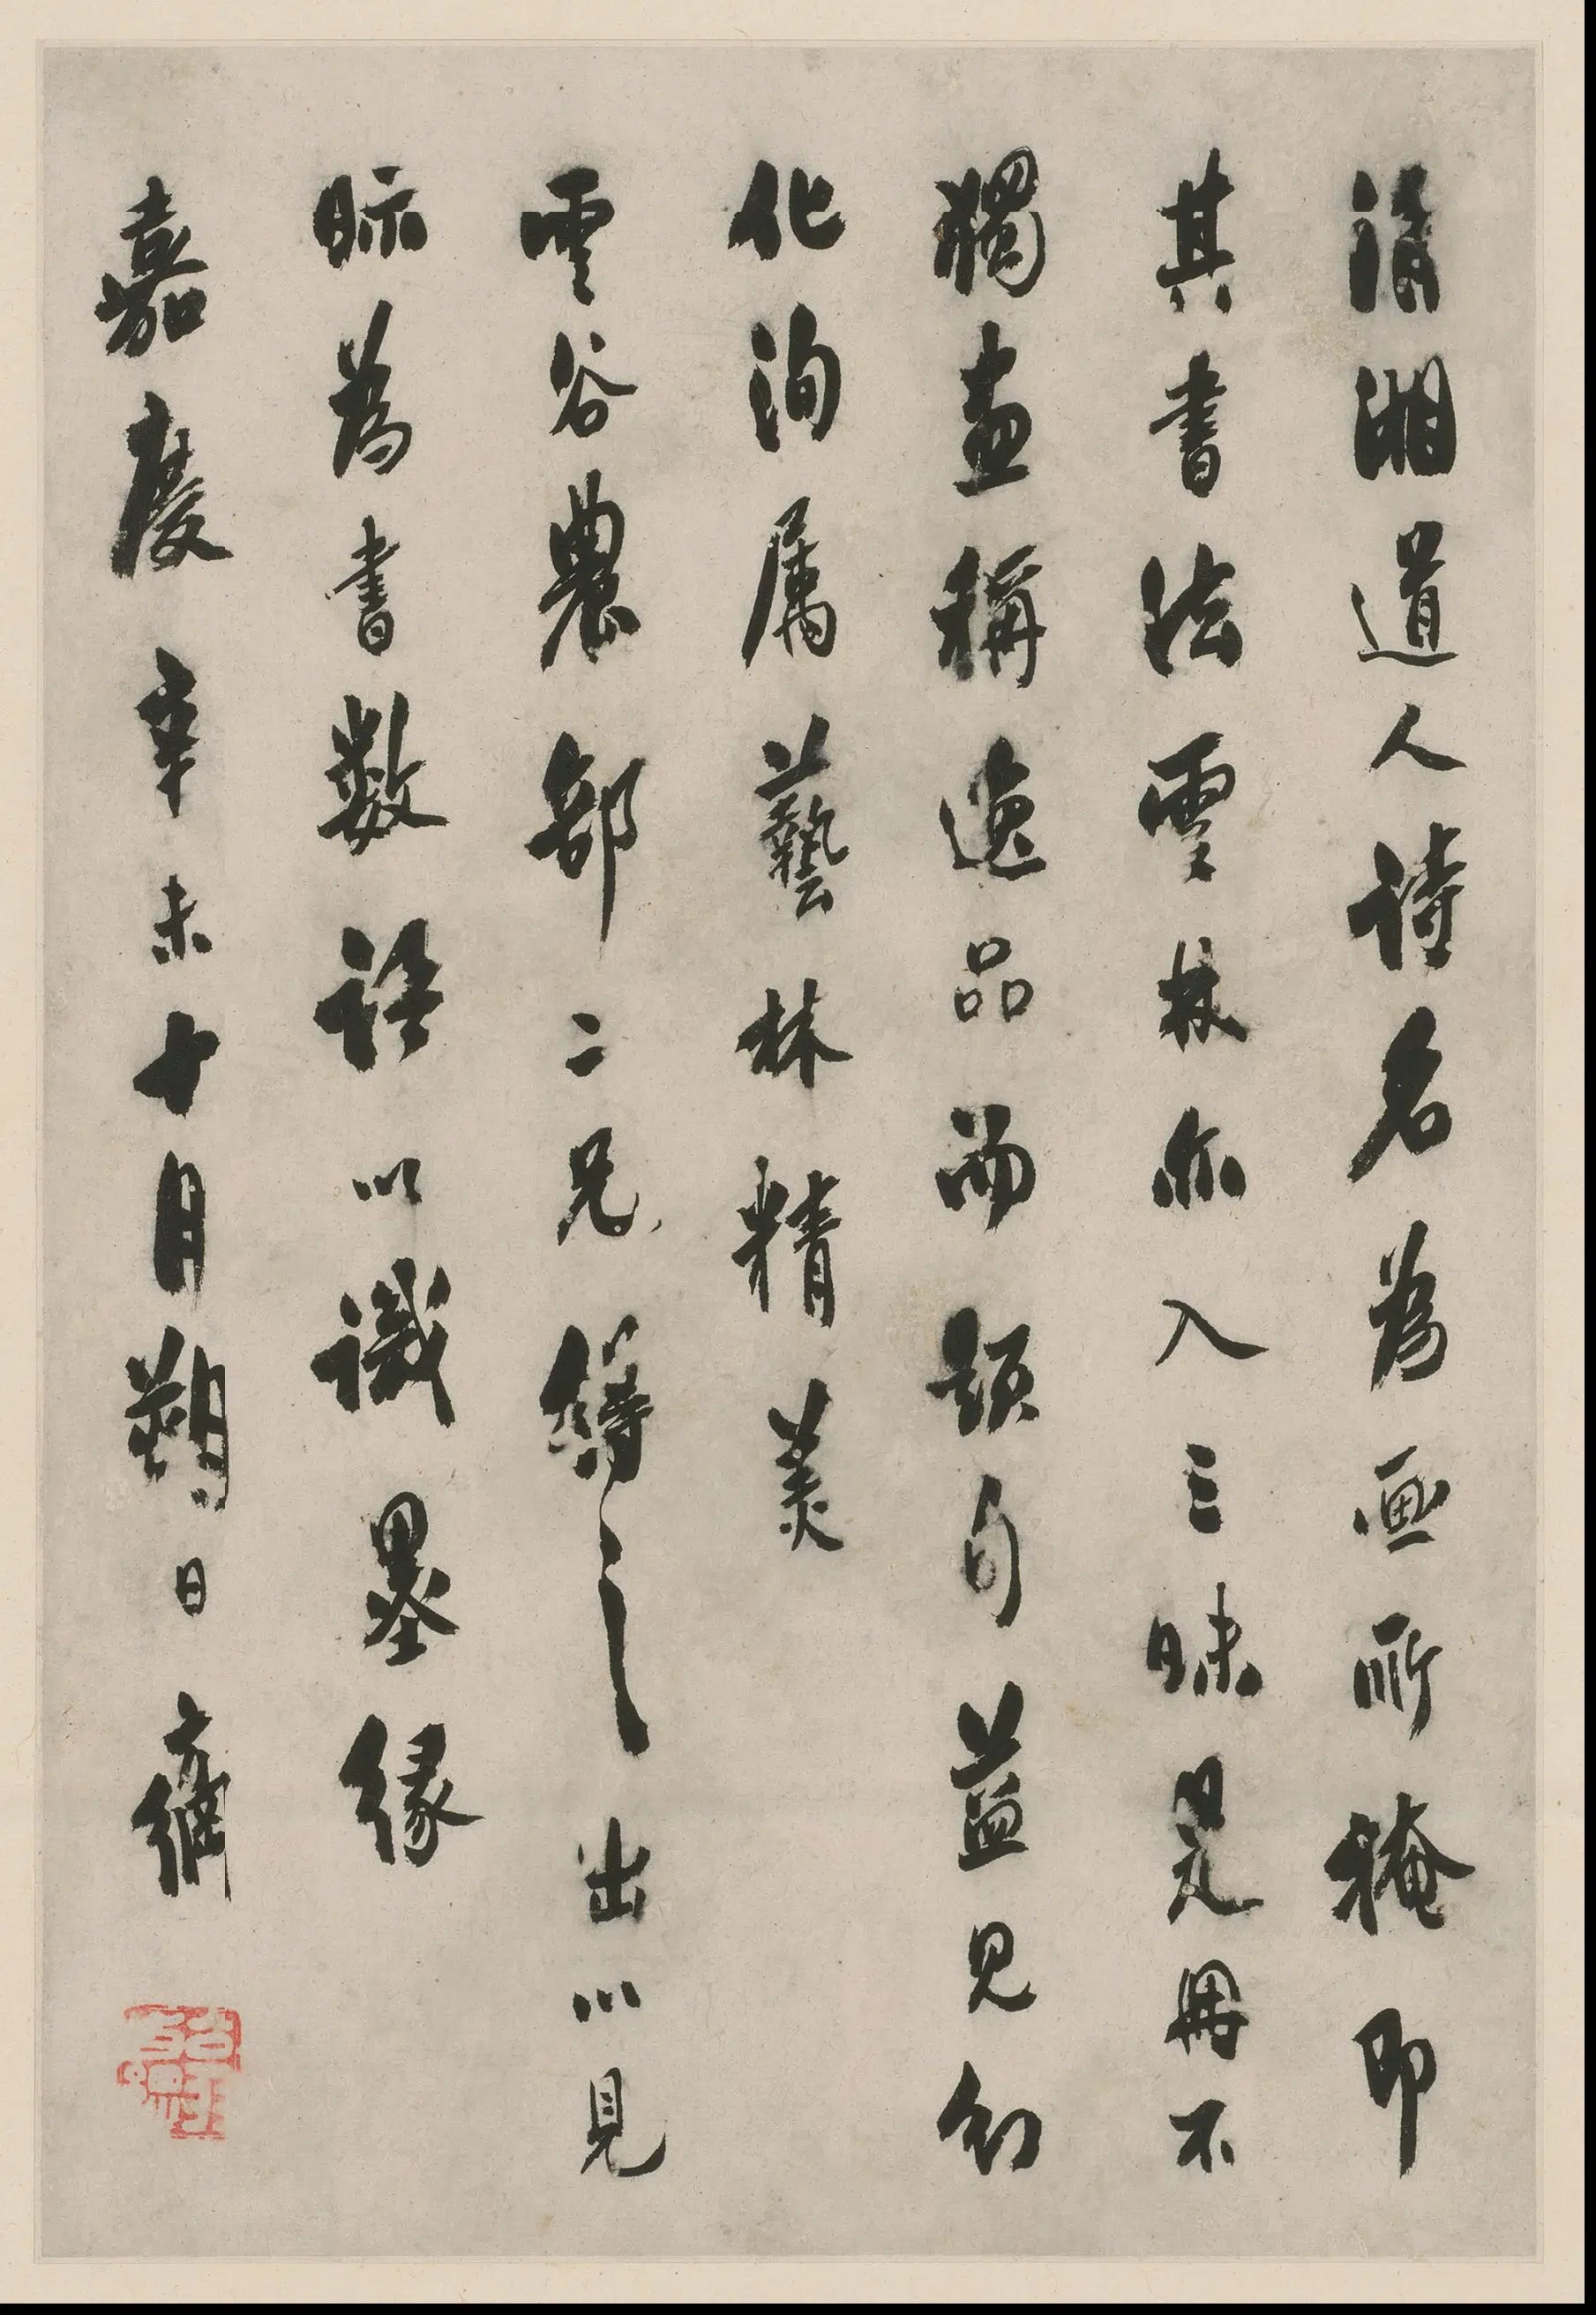 清湘道人詩名為画所掩即
其書法雲林亦入三昧是冊不
獨畫稱逸品而題句益見幻
化洵属藝林精美
雲谷農部二兄之出以見
眎為書数語以識墨緣
嘉慶辛未十月朔日